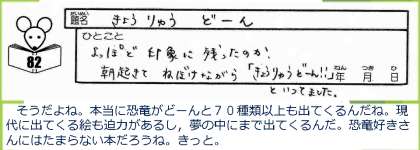 題名 だいめい きょうりゅう どーん
ひとこと
よっぽど印象に残ったのか、
朝起きて ねぼけながら「きょうりゅうどーん!!」
といってました。
年 ねん 月 つき 日 ひ
82
そうだよね。本当に恐竜がどーんと70種類以上も出てくるんだね。現
代に出てくる絵も迫力があるし，夢の中にまで出てくるんだ。恐竜好きさ
んにはたまらない本だろうね。きっと。